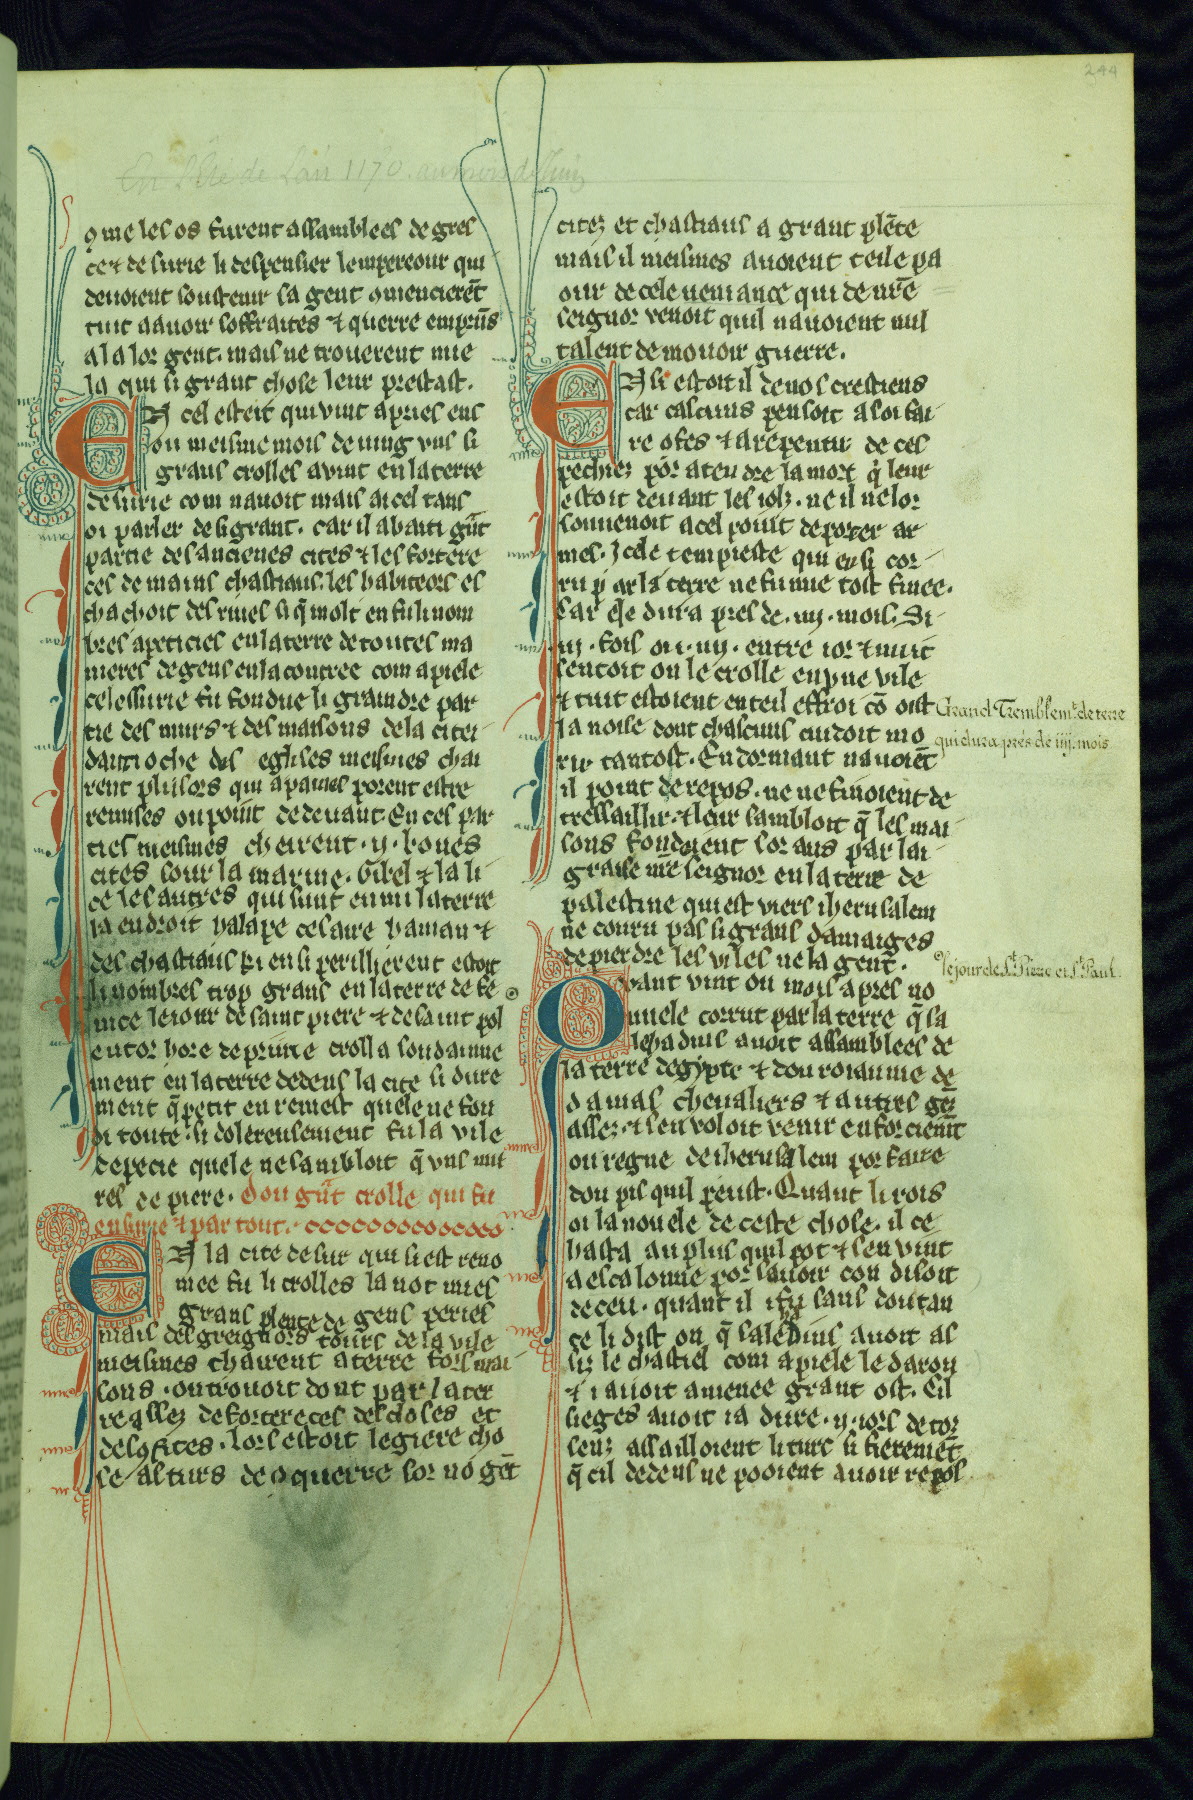 244
En l'Eté de l'an 1170. au mois de Juin
ꝯme les os furent assamblees de gres
ce ⁊ de surie li despensier lempereour qui
devoient soustenir sa gent ꝯmencierēt
tuit a avoir soffraites ⁊ querre emprūs
a la lor gent. mais ne trouerent mie
la qui si grant chose leur prestast.
EN cel esteit qui vint apries ens
ou meisme mois de iuing vns si
grans crolles avint en la terre
de surie com navoit mais a icel tans
oi parler de si grant. car il abati gūt
partie des ancienes cites ⁊ les fortere
ces de mains chastiaus. les habiteors es
chachoit des rines si q̄ molt en fu li nom
bres apeticies en la terre de toutes ma
nieres de gens en la contree com apiele
celessurie fu fondue li graindre par
tie des murs ⁊ des maisons de la citei
dantioche des eglyses meismes chai
rent plusors qui apaines porent estre
remises ou point de devant. En ces par
ties meismes cheirent .ij. boues
cites sour la marine. Gibel ⁊ la li
ce les autres qui sunt enmi la terre
ia endroit halape cesaire haman ⁊
des chastiaus ki ensi perillierent estoit
li nombres trop grans en la terre de fe
nice le iour de saint piere ⁊ de saint pol
entor hore de prime crolla soudainne
ment en la terre dedens la cite si dure
ment q̄ petit en remest quele ne fon
di toute. si dolereusement fu la vile
depecie quele ne sambloit q̄ vns mu
res de piere. Dou gūt crolle qui fu
en surie ⁊ par tout.
EN la cite de sur qui si est reno
mee fu li crolles la not mies
grans plente de gens peries
mais des greignors tours de la vile
meismes chaïrent a terre fors mai
sons. on trouoit dont par la ter
re assez de forterecesdescloses et
desꝯfites. lors estoit legiere cho
se as turs de ꝯquerre sor no gēt
citez et chastiaus a grant plēte
mais il meismes avoient teile pa
our de cele veniance qui de nr̄e
seignor venoit quil navoient nul
talent de mouoir guerre.
EN si estoit il de nos crestiens
car cascuns pensoit a soi fai
re ꝯfes ⁊ a repentir de ces
pechiez por atendre la mort q̄ leur
estoit devant les iolz. ne il ne lor
souvenoit a cel point de porter ar
mes. Icele tempieste qui ensi cor
ru par la terre ne fu mie tost finee.
Car ele dura pres de .iiij. mois. Si
.iij. fois ou .iiij. entre ior ⁊ nuit
sentoit on le crolle en vne vile
⁊ tuit estoient en teil effroi cō oist
la noise dont chascuns cuidoit mo
rir tantost. En dormant navoiēt
il point de repos. ne ne finoient de
tressaillir. ⁊ leur sambloit q̄ les mai
sons fondoient sor aus par la
graisse nr̄e seignor en la terre de
palestine qui est viers iherusalem
ne couru pas si grans damaiges
de pierdre les viles ne la gent.
Quant vint ou mois apres no
uuele corrut par la terre q̄ sa
lehadins avoit assamblees de
la terre degypte ⁊ dou roiaume de
damas chevaliers ⁊ autres gēz
assez. ⁊ sen voloit venir enforciemēt
ou regne de iherusalem por faire
dou pis quil peust. Quant li rois
oi la nouele de ceste chose. il ce
hasta au plus quil pot ⁊ sen vint
a escalonne por savoir con disoit
de ceu. quant il i fu sans doutan
ce li dist on q̄ salehdins avoit as
siz le chastiel com apiele le daron
⁊ i avoit amenee grant ost. Cil
sieges avoit ia dure .ij. iors de tor
senz assailloient li turc si fieremēt
q̄ cil dedens ne pooient avoir repos
Grand Tremblemt. de terre
qui dura près de iiij. mois
le jour de St. Pierre et St. Paul.